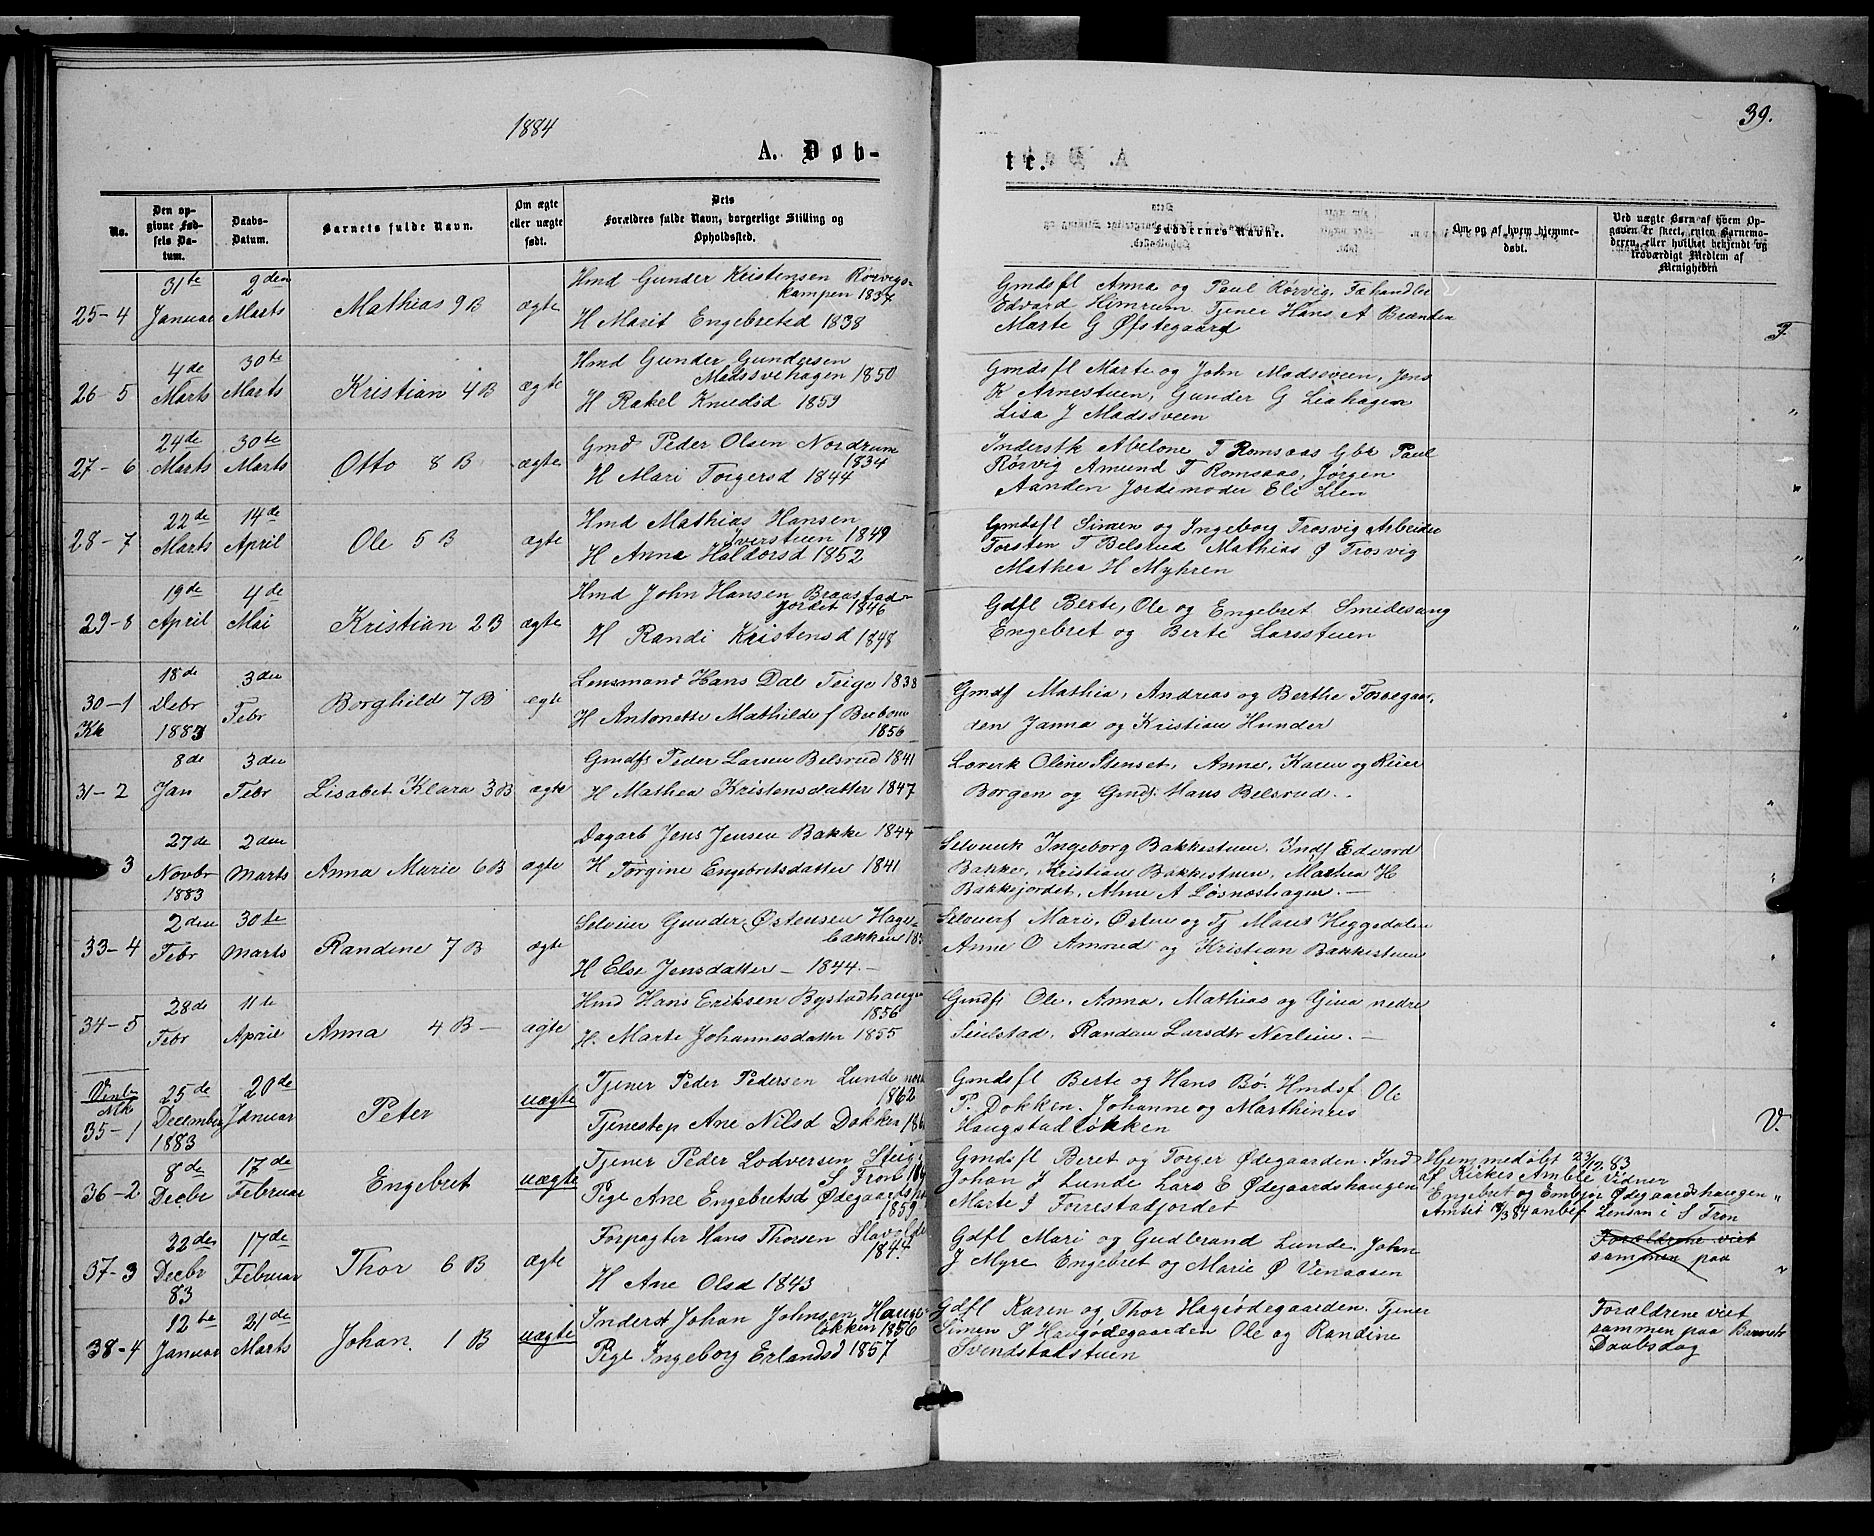 1884
39.
A. Døb-
tr.
No.
Den op-
givne Fød-
sels Da-
tum.
Daabs-
Datum.
Barnets fulde Navn.
Om ægte
eller uægte
født.
Dets
Forældres fulde Navn, borgerlige Stilling og
Opholdssted.
Faddernes Navne.
Om og af hvem hjemme-
døbt.
Ved uægte Børn af hvem Op-
gaven er skeet, enten Barnemo-
deren, eller hvilket bekjendt og
troværdigt Medlem af
Menigheden
25-4
31te
Januar
2den
Marts
Mathias 9 B
ægte
Hmd Gunder Kristensen Rørvigs-
kampen 1837
H Marit Engebretsd 1838
Gmdsfl Anna og Paul Rørvig, Fæhandler
Edvard Himrum Tjener Hans A Brænden
Marte G Øfstegaard
F.
26-5
4de
Marts
30te
Marts
Kristian 4 B
ægte
Hmd Gunder Gundersen
Madssvehagen 1850
H Rakel Knudsd 1859
Gmdsfl Marte og John Madssveen, Jens
K Arnestuen, Gunder G Liahagen
Lisa J Madssveen
"
27-6
24de
Marts
30te
Marts
Otto 8 B
ægte
Gmd Peder Olsen Nordrum
1834
H Mari Torgersd 1844
Inderstk Abelone T Romsaas Gbr Paul
Rørvig Amund T Romsaas, Jørgen
Aanden Jordemoder Eli Lien
"
28-7
22de
Marts
14de
April
Ole 5 B
ægte
Hmd Mathias Hansen
Iverstuen 1849
H Anna Haldorsd 1852
Gmdsfl Simen og Ingeborg Trosvig Arbeider
Torsten T Belsrud Mathias Ø Trosvig
Mathea H Myhren
"
29-8
19de
April
4de
Mai
Kristian 2 B
ægte
Hmd John Hansen Braastad-
jordet 1846
H Randi Kristensd 1848
Gdfl Berte, Ole og Engebret Smidesang
Engebret og Berte Larsstuen
"
30-1
Kk
18de
Debr
1883
3den
Febr
Borghild 7 B
ægte
Lensmand Hans Dal Teige 1838
H Antonette Mathilde f Beebom
1856
Gmdf Mathia, Andreas og Berthe
den Janna og Kristian Hunder
"
31-2
8de
Jan
3den
Febr
Lisabet Klara 3 B
ægte
Gmdf Peder Larsen Belsrud 1841
H Mathea Kristensdatter 1847
Olene Stenset, Anne, Karen og Reier
Borgen og Gmdf. Hans Belsrud.
"
3
27de
Novbr
1883
2den
Marts
Anna Marie 6 B
ægte
Dagarb Jens Jensen Bakke 1844
H Torgine Engebretsdatter 1841
Selveierk Ingeborg Bakkestuen. Indf Edvard
Bakke, Kristian Bakkestuen, Marthea H
Bakkejordet, Alme A Løsnæshagen. —
"
33-4
2den
Febr
30te
Marts
Randine 7 B
ægte
Selveier Gunder Østensen Hage-
bakken
H Else Jensdatter — 1844. —
Selveierf Mari, Østen og Tj Maus Heggedalen
Anne O Amrud og Kristian Bakkestuen
"
34-5
28de
Febr
11te
April
Anna 4 B —
ægte
Hmd Hans Eriksen Bystadhaugen
1856
H. Marte Johannesdatter 1855
Gmdfl Ole, Anna, Mathias og Gina nedre
Seielstad, Randeu Larsdtr Nerlien. —
"
Venb
Mk
35-1
25de
December
1883
20de
Januar
Peter
uægte
Tjener Peder Pedersen Lunde
1862
Tjenestep Ane Nilsd Dokken
Gmdsfl Berte og Hans Bø. Hmdsf Ole
P. Dokken. Johanne og Marthinres
Haugstadløkken
V.
36-2
8de
Decbr
17de
Februar
Engebret
uægte
Tjener Peder Lodversen Steig
S Fron
Pige Ane Engebretsd Ødegaards
1859
Gmdsfl Beret og Torger Ødegaarden. Ind
Johan J Lunde Lars E Ødegaardshaugen
Marte I Forrestadjordet
Hjemmedøbt 23/12 83
af Kirkes Amble Vidner
Engebret og Embjør Ødegaardshaugen
Amtet 18/3 84 anbef Lensm i S Fron
"
37-3
22den
Decbr
83
17de
Februar
Thor 6 B
ægte
Forpagter Hans Thorsen
1844
H Ane Olsd 1843
Gdfl Mari og Gudbrand Lunde. John
J Myre Engebret og Marie Ø Venaasen
Forældrene viet
sammen paa
"
38-4
12te
Januar
21de
Marts
Johan. 1 B
uægte
Inderst Johan Johnsen Hauge-
løkken 1856
Pige Ingeborg Erlandsd 1857
Gdfl Karen og Thor Hageødegaarden. Tjener
Simen T Haugødegaarden Ole og Randine
Svendstadstuen
Forældrene viet
sammen paa Barnets
Daabsdag